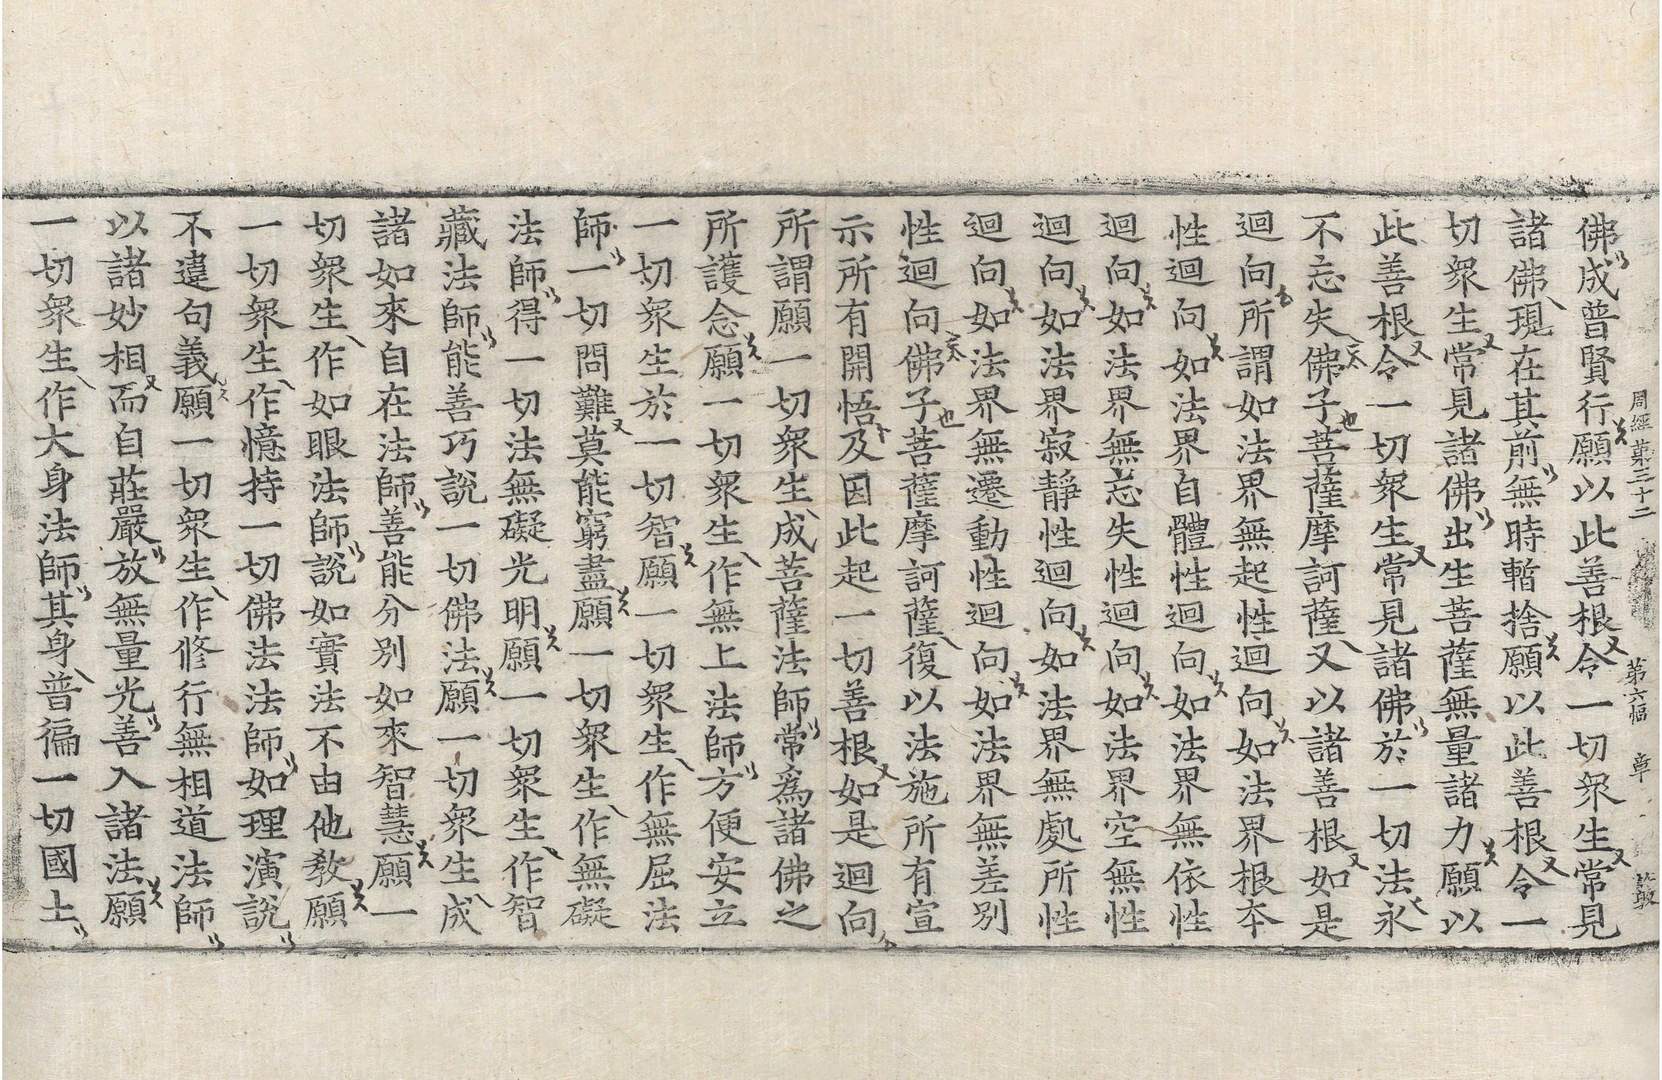 周經第三十二 第六幅 章
佛成普賢行願以此善根令一切衆生常見
諸佛現在其前無時暫捨願以此善根令一
切衆生常見諸佛出生菩薩無量諸力願以
此善根令一切衆生常見諸佛於一切法永
不忘失佛子菩薩摩訶薩又以諸善根如是
迴向所謂如法界無起性迴向如法界根本
性迴向如法界自體性迴向如法界無依性
迴向如法界無忘失性迴向如法界空無性
迴向如法界寂靜性迴向如法界無處所性
迴向如法界無遷動性迴向如法界無差別
性迴向佛子菩薩摩訶薩復以法施所有宣
示所有開悟及因此起一切善根如是迴向
所謂願一切衆生成菩薩法師常爲諸佛之
所護念願一切衆生作無上法師方便安立
一切衆生於一切智願一切衆生作無屈法
師一切問難莫能窮盡願一切衆生作無礙
法師得一切法無礙光明願一切衆生作智
藏法師能善巧說一切佛法願一切衆生成
諸如來自在法師善能分別如來智慧願一
切衆生作如眼法師說如實法不由他敎願
一切衆生作憶持一切佛法法師如理演說
不違句義願一切衆生作修行無相道法師
以諸妙相而自莊嚴放無量光善入諸法願
一切衆生作大身法師其身普徧一切國土